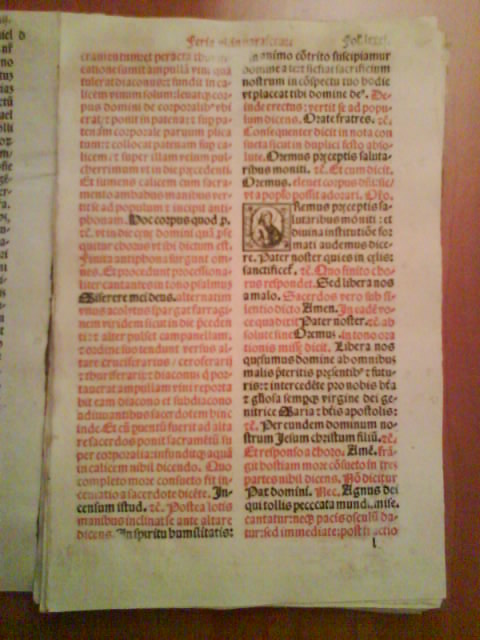 Feria vi. in parasceue
Fol. lxxxi.
cramentum: et peracta
catione sumit ampullā vini quā
diaconus: fundit in ca
licem vinum solum: leuat
pus domini de corporalib9
crat: et ponit in patena: et sup pa
tenā in corporale paruum plica
tum: et collocat patenam sup ca
licem: et super illam velum pul-
cherrimum vt in die precedenti
Et sumens calicem cum sacra-
mento ambabus manibus ver-
tit se ad populum et incipit anti-
phonam. Hoc corpus quod p.
ꝛc̄. vt in die cene domini quā pse-
quitur chorus vt ibi dictum est.
Finita antiphona surgunt om-
nes. Et procedunt processiona-
liter cantantes in tono psalmus
Miserere mei deus. alternatim
vnus acolytus spargat
nem viridem sicut in die
ti: et alter pulset campanellam.
et ordine suo tendunt versus al-
tare cruciferarius / ceroferarii
et thuriferarii: et diaconus
tauerat ampullam vini reporta
bit eam diacono et subdiacono
adiuuantibus sacerdotem hinc
inde. Et cū puentū fuerit ad alta
re sacerdos ponit sacramētū su
per corporalia: infunditq3 aquā
in calicem nihil dicendo. Quo
completo more consueto fit in-
censatio a sacerdote dicēte. In-
censum istud. ꝛc̄. Postea lotis
manibus inclinat se ante altare
dicens. In spiritu humilitatis:
in animo cōtrito suscipiamur
domine a te: et sic fiat sacrificium
nostrum in cōspectu tuo hodie
vt placeat tibi domine de9. De-
inde erectus: vertit se ad popu-
lum dicens. Orate fratres. ꝛc̄.
Consequenter dicit in nota con
sueta sicut in duplici festo abso-
lute. Oremus. preceptis saluta-
ribus moniti. ꝛc̄. Et cum dicit.
Oremus. eleuet corpus
vt a poplo possit adorari. Oro.
Oremus preceptis sa-
lutaribus moniti: et
diuina institutiōe for
mati audemus dice-
re. Pater noster qui es in celis:
sanctificet. ꝛc̄. Quo finito cho-
rus respondet. Sed libera nos
a malo. Sacerdos vero sub si-
lentio dicto Amen. In eadē vo-
ce qua dixit Pater noster. ꝛc̄. ab
solute sine Oremus. in tono ora
tionis misse dicit. Libera nos
quesumus domine ab omnibus
malis preteritis presentib9 et futu-
ris: et intercedēte pro nobis bt̄a
et gl̄iosa semperq3 virgine dei ge-
nitrice Maria: et bt̄is apostolis:
ꝛc̄. Per eundem dominum no-
strum Jesum christum filiū. ꝛc̄.
Et responso a choro. Amē. frā-
git hostiam more cōsueto in tres
partes nihil dicens. Nō dicitur
Pax domini. Nec. Agnus dei
qui tollis peccata mundi. mise.
cantatur: neq3 pacis osculū da-
tur: sed immediate: post fractio
l